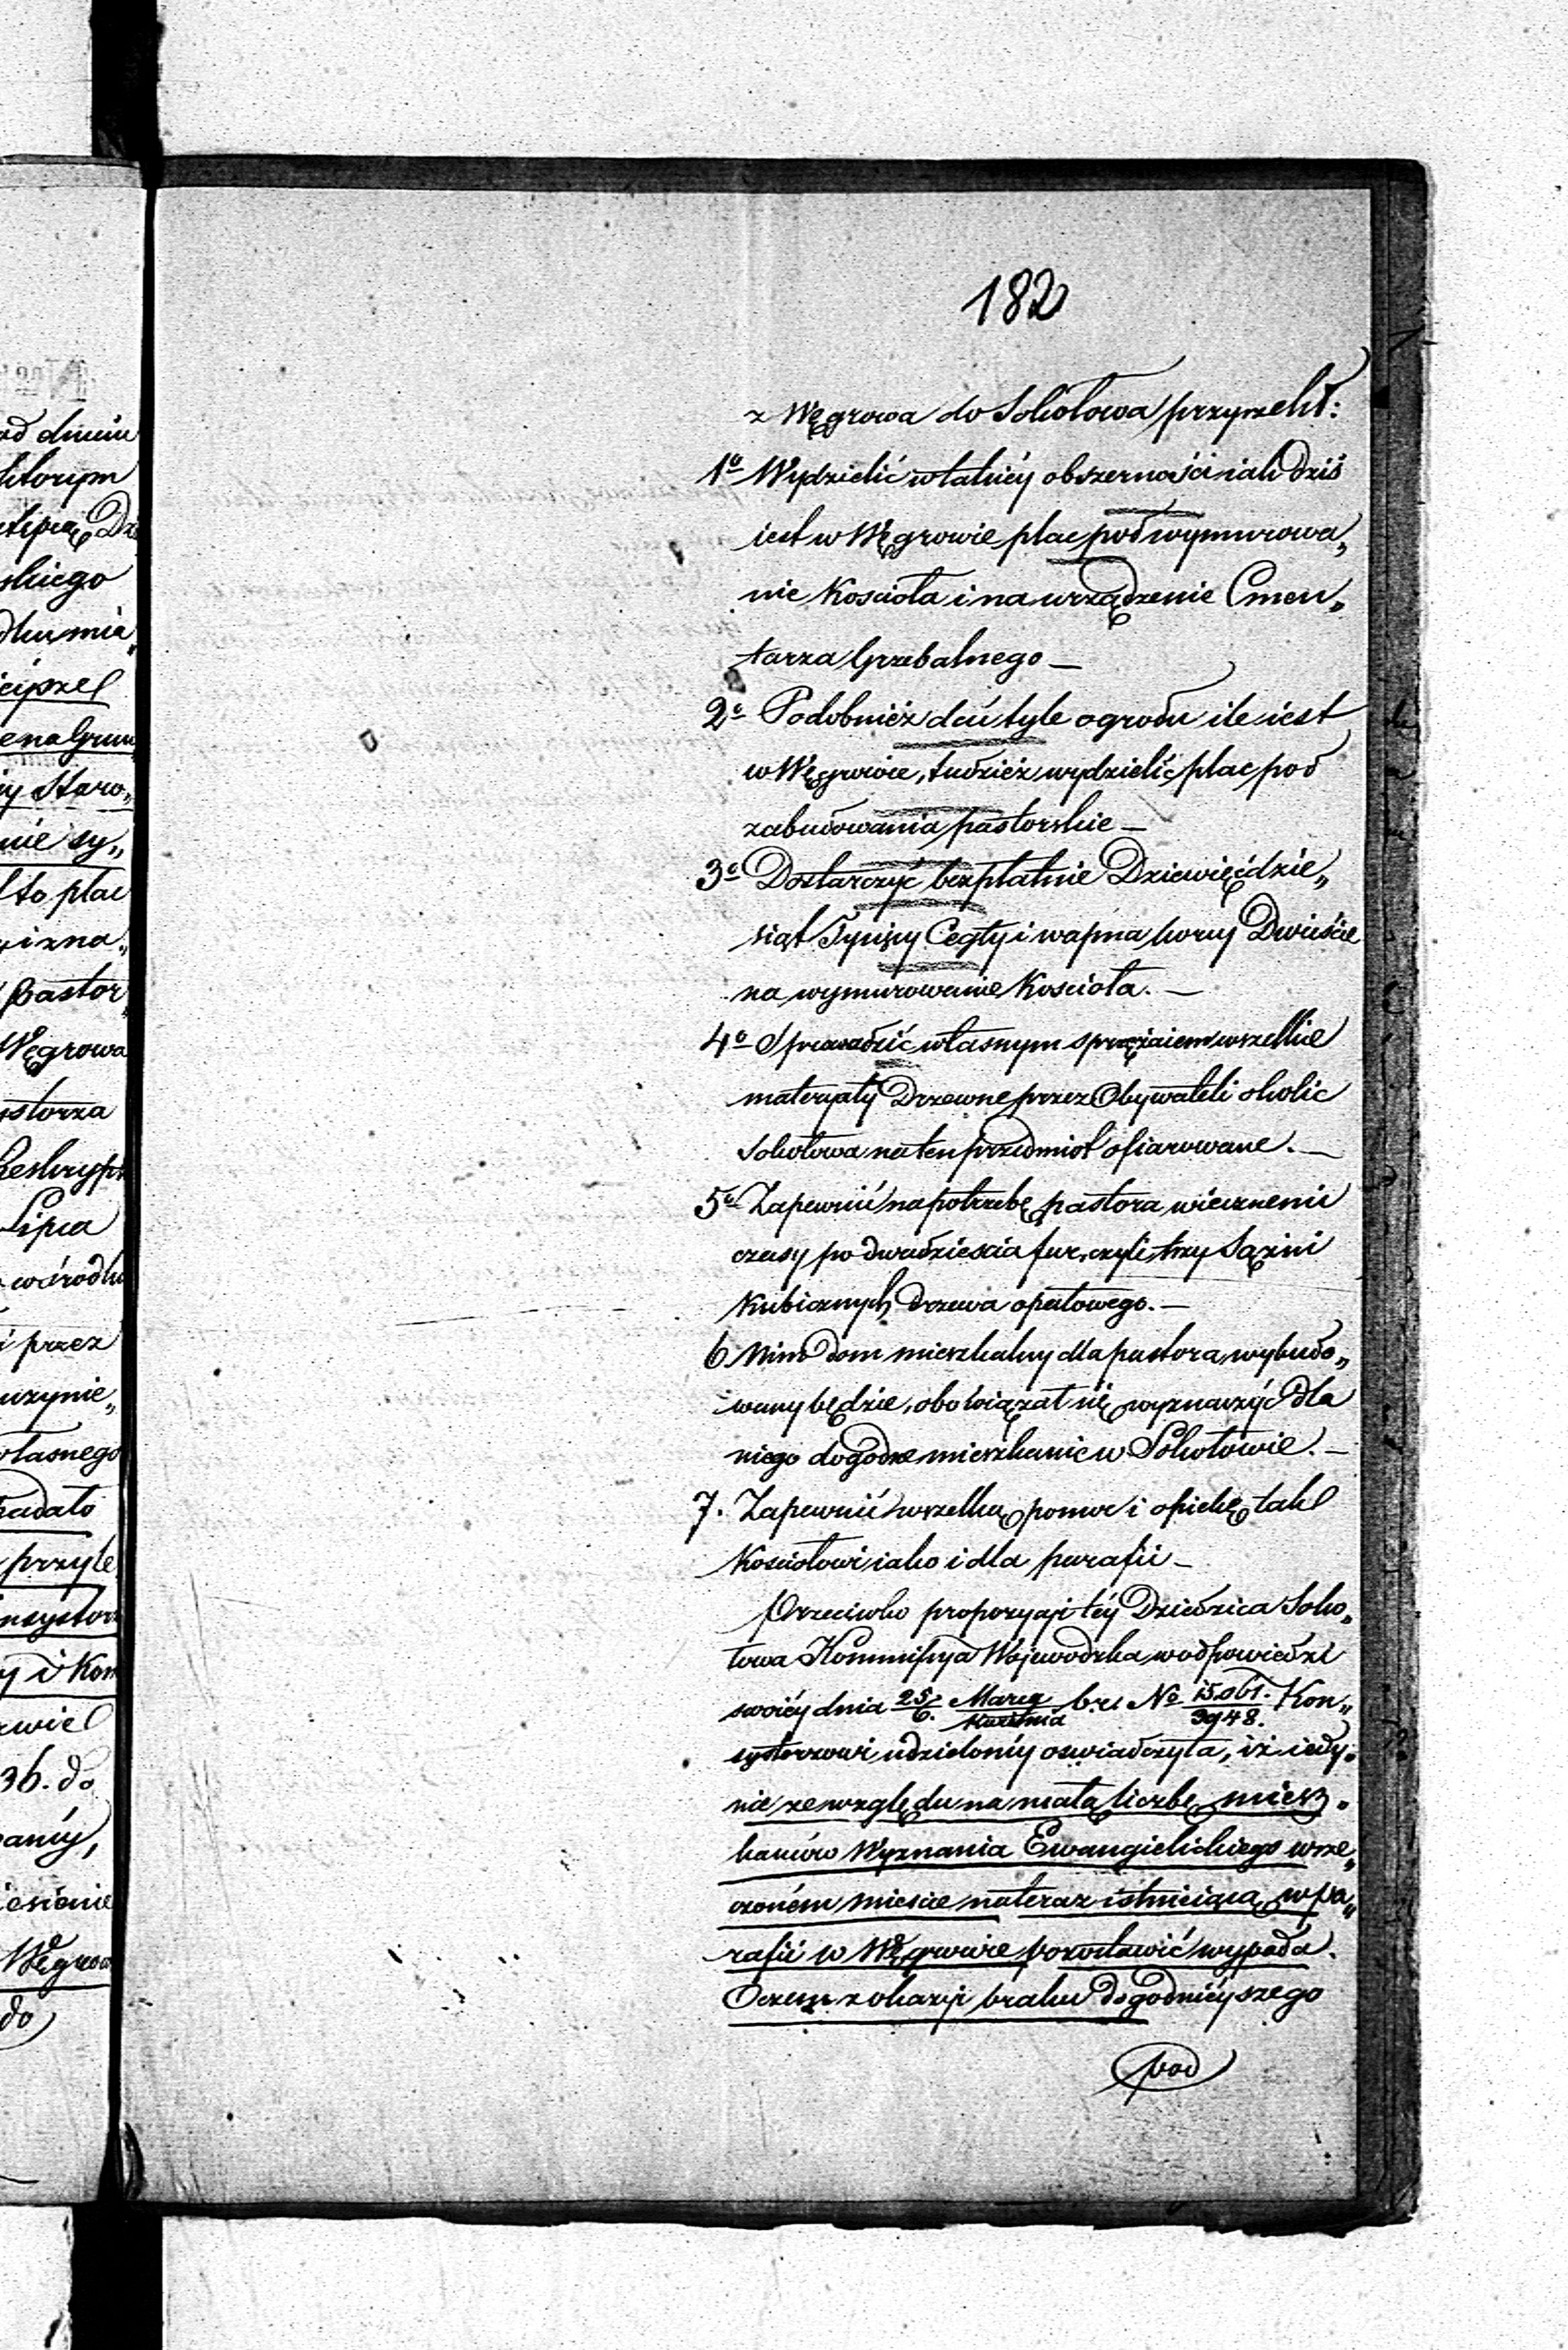 182
z Węgrowa do Sokołowa przyrzekł:
1º Wydzielić w takiéy obszerności iak dziś
iest w Węgrowie plac pod wymurowa„
nie Kościoła i na urządzenie Cmen„
tarza Grzebalnego —
2º Podobnież dać tyle ogrodu ile iest
w Węgrowie, tudzież wydzielić plac pod
zabudowania pastorskie —
3º Dostarczyć bezpłatnie Dziewięćdzie„
siąt Tysięcy Cegły i wapna korcy Dwieście
na wymurowanie Kościoła. —
4º Sprowadzić własnym sprzężaiem wszelkie
materyały Drzewne przez Obywateli okolic
Sokołowa na ten przedmiot ofiarowane. —
5º Zapewnić na potrzebę pastora wiecznemi
czasy po dwadzieścia fur, czyli trzy Sążni
Kubicznych drzewa opałowego. —
6 Nim dom mieszkalny dla pastora wybudo„
wany będzie, obowiązał się wyznaczyć dla
niego dogodne mieszkanie w Sokołowie. —
7. Zapewnić wszelką pomoc i opiekę tak
Kościołowi iako i dla parafii —
Przeciwko propozycji téy Dziedzica Soko„
łowa Kommissya Wojewodzka w odpowiedzi
swoiéy dnia 25/6. Marca/Kwietnia b.r. Nº 15.061./3948. Kon„
systorzowi udzielonéy oswiadczyła, iż iedy„
nie ze względu na małą liczbę miesz„
kańców Wyznania Ewangielickiego w rze„
czoném mieście na teraz istnieiącą, w pa„
rafii w Węgrowie pozostawić wypada.
O czem z okazyi braku dogodniéyszego
pod
ad dniem
którym
skiego
Grun
ny Staro„
nie sy„
to plac
i zna„
Pastor
Węgrowa
storza
Reskrypt
Lipca
w środku
i przez
uczynie„
własnego
nadało
przyle
onsystor
y i Kom
36. do
Węgrow
do